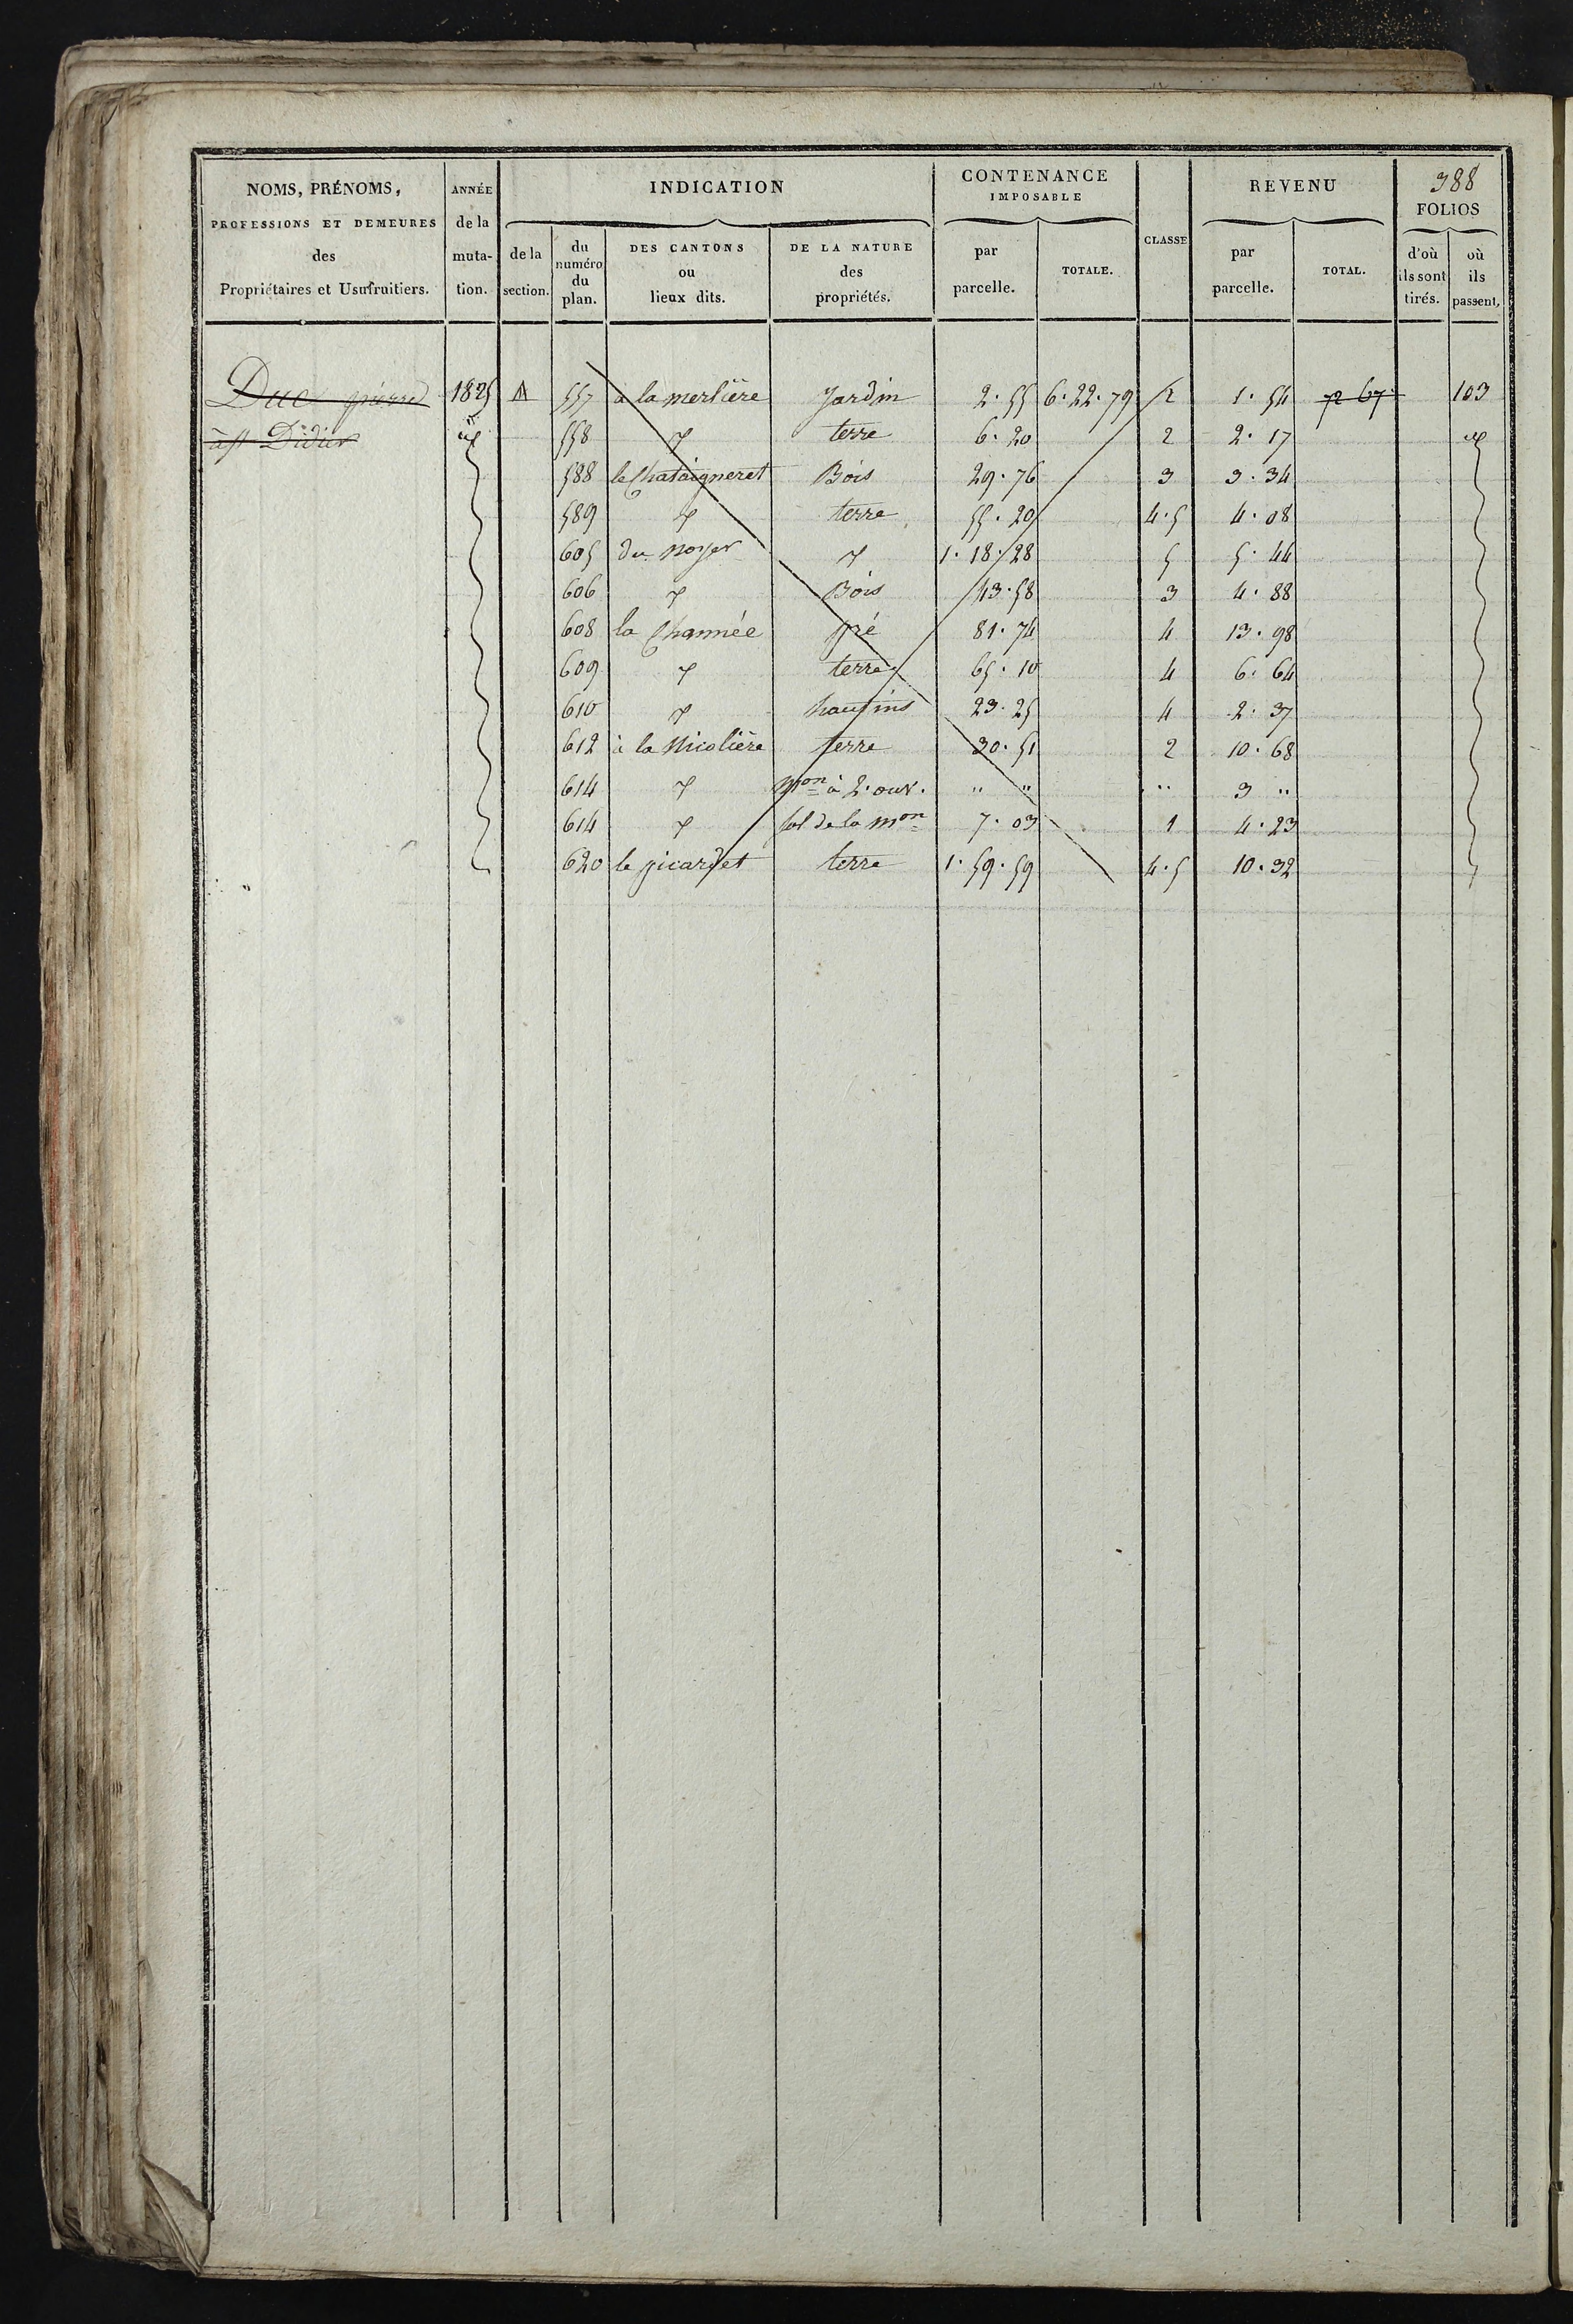 NOMS, PRÉNOMS, PROFESSIONS ET DEMEURES des Propriétaires et Usufruitiers.
ANNÉE de la muta-tion.
INDICATION
de la section.
du numéro du plan.
DES CANTONS ou lieux dits.
DE LA NATURE des propriétés.
CONTENANCE IMPOSABLE
par parcelle.
TOTALE.
CLASSE
REVENU
par parcelle.
TOTAL.
388
FOLIOS
d'où ils sont tirés.
où ils passent.
Duc pierre 1825 A 557 à la merlière Jardin 2·55 6·22·79 2 1·54 72 67 103
à st Didier id 558 〃 terre 6·20 2 2·17 id
588 le Chataigneret Bois 29·76 3 3·34
589 〃 terre 55·20 4·5 4·08
605 du noyer 〃 1·18·28 5 5·44
606 〃 Bois 43·58 3 4·88
608 la Channée pré 81·74 4 13·98
609 〃 terre 65·10 4 6·64
610 〃 hautins 23·25 4 2·37
612 à la Nicolière terre 30·51 2 10·68
614 〃 Mon à 2·ouv. " " " 3 "
614 〃 sol de la mon 7·03 1 4·23
620 le picardet terre 1·59·59 4·5 10·32